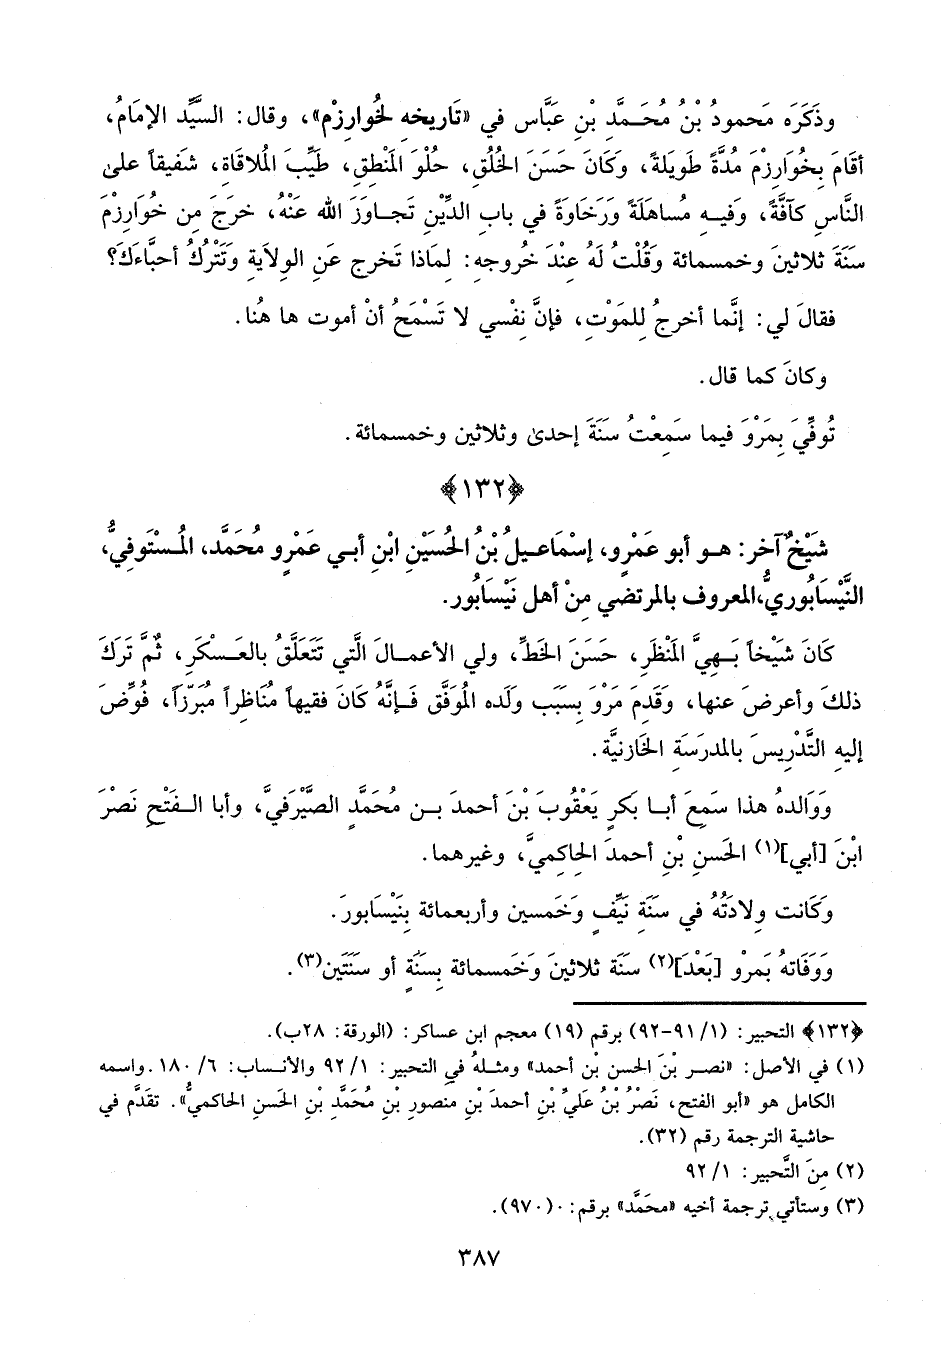 وذَكَرَه مَحمودُ بْنُ مُحَمَّد بْنِ عَبَّاس في «تَاريخه لخُوارِزْم»، وقال: السَّيِّد الإمَامُ،
أقَامَ بِخُوَارِزْمَ مُدَّةً طَويلَةً، وَكَانَ حَسَنَ الخُلُقِ، حُلْوَ المَنْطِقِ، طَيِّبَ المُلاقَاةِ، شَفيقاً على
النَّاسِ كآفَّةً، وَفيه مُساهَلَةً وَرَخَاوَةً في باب الدِّيْنِ تَجاوَزَ الله عَنْهُ، خرَجَ مِن خُوَارِزْمَ
سَنَةَ ثلاثينَ وخمسمائة وَقُلْتُ لَهُ عِنْدَ خُروجِهِ: لِمَاذا تَخرج عَنِ الوِلاَيةِ وَتَتْرُكُ أحبَّاءَكَ؟
فقالَ لي: إنَّما أخرجُ لِلمَوْتِ، فإنَّ نِفْسي لا تَسْمَحُ أنْ أموت ها هُنا.
وكانَ كما قال.
تُوفِّيَ بِمَرْوَ فيما سَمِعْتُ سَنَةَ إحدىٰ وثلاثين وخمسمائة.
﴿١٣٢﴾
شَيْخٌ آخر: هو أبو عَمْرٍو، إسْمَاعيلُ بْنُ الحُسَيْنِ ابْنِ أبي عَمْرٍو مُحَمَّد، المُسْتَوفِيُّ،
النَّيْسَابُوريُّ،المعروف بالمرتضي مِنْ أهل نَيْسَابُور.
كَانَ شَيْخاً بَهِيَّ المَنْظَرِ، حَسَنَ الخَطِّ، ولي الأعمالَ الَّتي تَتَعَلَّقُ بالعَسْكَرِ، ثُمَّ تَرَكَ
ذلكَ وأعرضَ عنها، وَقَدِمَ مَرْوَ بِسَبَب وَلَده المُوَفَّق فَإنَّهُ كَانَ فقيهاً مُنَاظراً مُبَرّزَاً، فُوِّضَ
إليهِ التَّدْرِيسَ بالمدرَسَةِ الخَازنيَّة.
وَوَالدهُ هذا سَمِعَ أبا بَكرٍ يَعْقُوبَ بْنَ أحمدَ بن مُحَمَّدٍ الصَّيْرَفيَّ، وأبا الفَتْحِ نَصْرَ
ابْنَ [أبي](١) الحَسن بْنِ أحمدَ الحاكِميَّ، وغيرهما.
وَكَانت وِلادَتُهُ في سَنَةِ نَيِّفٍ وَخَمسين وأربعمائة بِنَيْسابورَ.
وَوَفَاتهُ بَمرْو [بَعْدَ](٢) سَنَة ثلاثينَ وخَمسمائة بِسَنَةٍ أو سَنَتَين(٣).
﴿١٣٢﴾ التحبير: (١/ ٩١-٩٢) برقم (١٩) معجم ابن عساكر: (الورقة: ٢٨ب).
(١) في الأصل: «نصر بْنَ الحسن بْن أحمد» ومثلهُ في التحبير: ١/ ٩٢ والأنساب: ٦/ ١٨٠.واسمه
الكامل هو «أبو الفتح، نَصْرُ بْنُ عَليِّ بْنِ أحمدَ بْنِ منصورِ بْنِ مُحَمَّدِ بْنِ الحَسنِ الحَاكميُّ». تقدَّم في
حاشية الترجمة رقم (٣٢).
(٢) مِنَ التَّحبير: ١/ ٩٢
(٣) وستأتي ترجمة أخيه «محَمَّد» برقم: (٩٧٠).
٣٨٧